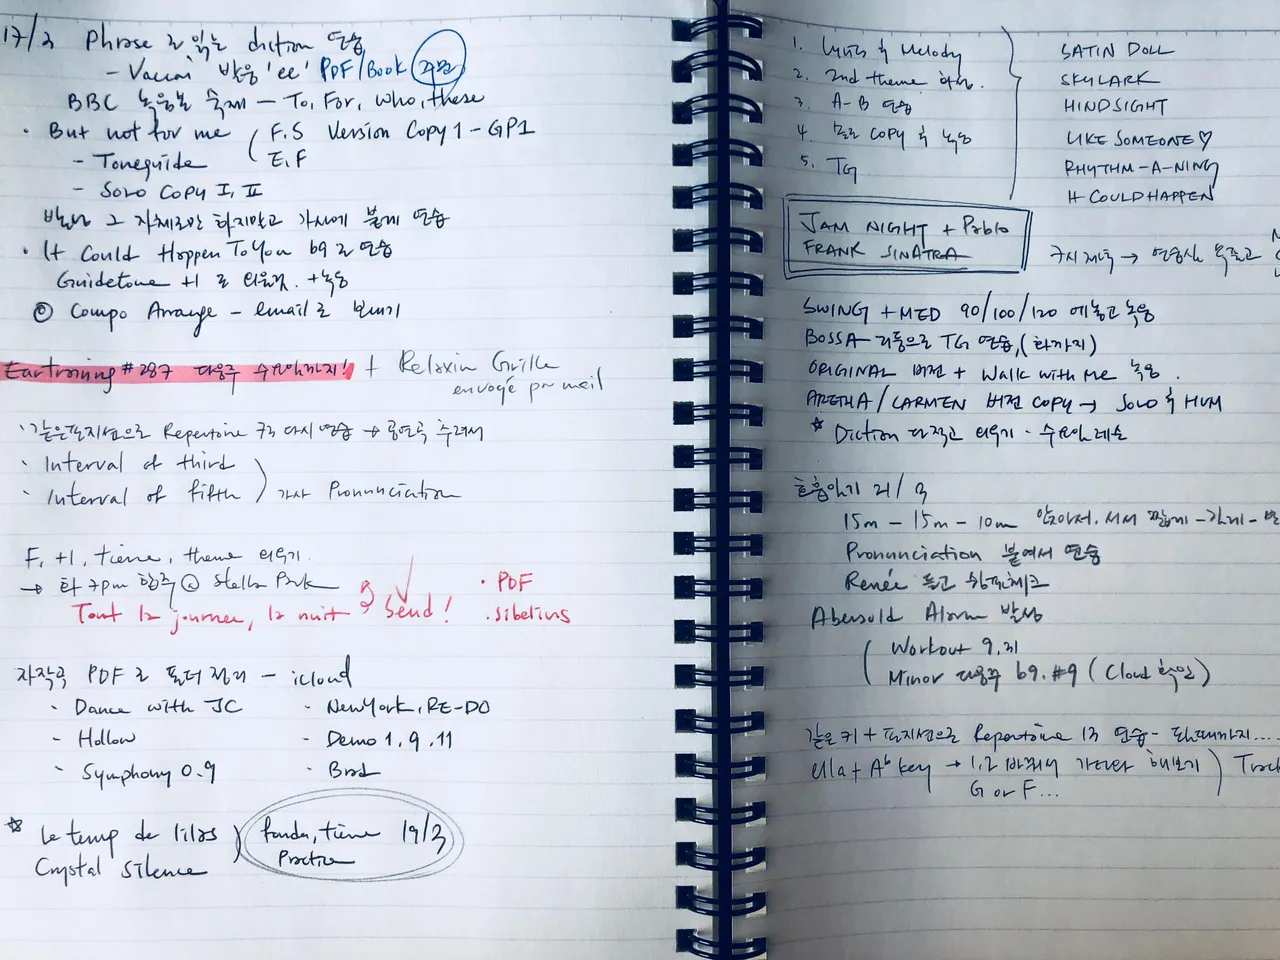 17/3 Phrase로 읽는 diction 연습
- Vaccai 발음 'ee' PDF/Book
BBC 녹음본 숙제 - To, For, who, these
· But not for me ( F.S Version Copy 1 - GP1
- Toneguide E.F
- Solo Copy I, II
그 자체로만 하지말고 가사에 붙여 연습
· It Could Happen To You b9로 연습
Guidetone +1로 외울것. +녹음
◎ Compo Arrange - email로 보내기
Eartraining #287 다음주 수요일까지! + Relaxin Grille
envoyé par mail
· 같은 포지션으로 Repertoire 다시 연습 → 공연곡 추려서
· Interval of third
· Interval of fifth ) 가사 Pronunciation
F, +1, tierce, theme 외우기.
→ 화 7pm 합주 @ Stella Park
Tout la journee, la nuit Send!
· PDF
· Sibelius
자작곡 PDF로 폴더 정리 - icloud
· Dance with JC
· Hollow
· Symphony 0.9
- New York, RE-DO
- Demo 1, 9, 11
- Brad
☆ Le temp de lilas
Crystal Silence
fonda, tierce 19/3
Practice
1. Lyrics & Melody
2. 2nd theme
3. A-B 연습
4. 솔로 copy & 녹음
5. TG
SATIN DOLL
SKYLARK
HINDSIGHT
LIKE SOMEONE♡
RHYTHM-A-NING
It COULD HAPPEN
JAM NIGHT + Pablo
FRANK SINATRA
→ 연습실
SWING + MED 90/100/120 에 놓고 녹음
BOSSA 리듬으로 TG 연습, (화까지)
ORIGINAL 버전 + Walk with Me 녹음.
ARETHA/CARMEN 버전 COPY → SOLO & HUM
☆ Diction 다 적고 외우기 · 수요일 레슨
호흡하기 21/3
15m - 15m - 10m 앉아서. 서서 짧게 - 길게 -
Pronunciation 붙여서 연습
Renée 듣고
Abersold Alarm 발성
( Workout 9.21
Minor 다음주 b9. #9 (Cloud 확인)
같은 키 + 포지션으로 Repertoire 13 연습 -
Ella + Ab key → 1,2 바꿔서 해보기 )
G or F...